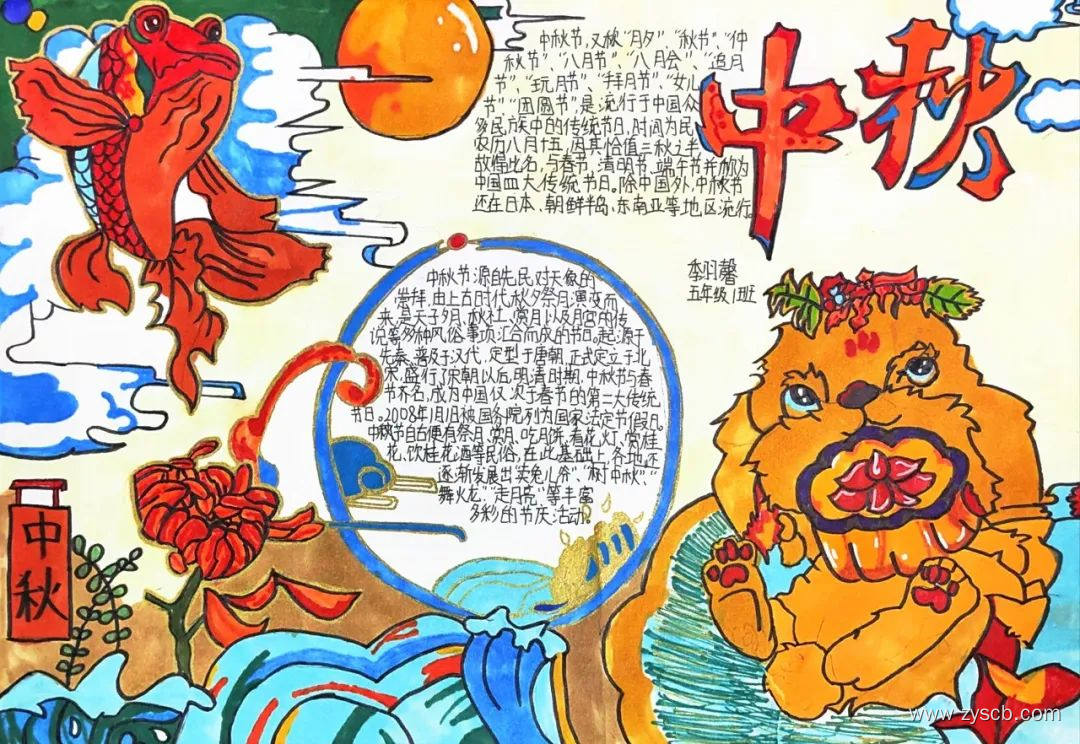 中秋
中秋节,又称“月夕”“秋节”、“仲
秋节”、“八月节”、“八月会”、“追月
节”、“玩月节”、“拜月节”、“女儿
节”“团圆节”,是流行于中国众
多民族中的传统节日,时间为民
农历八月十五,因其恰值三秋之半,
故得出名,与春节、清明节、端午节并称为
中国四大传统节日。除中国外,中秋节
还在日本、朝鲜半岛、东南亚等地区流行。
季羽馨
五年级1班
中秋节源自先民对天像的
崇拜,由上古时代秋夕祭月演变而
来,是天子夕月、秋社、赏月以及月宫的传
说等多种风俗事项汇合而成的节日。起源于
先秦、普及于汉代,定型于唐朝,正式定立于北
宋,盛行了宋朝以后。明清时期,中秋节与春
节齐名,成为中国仅次于春节的第二大传统
节日。2008年1月1日被国务院列为国家法定节假日。
中秋节自古便有祭月、赏月、吃月饼、看花灯、赏桂
花、饮桂花酒等民俗,在此基础上,各地还
逐渐发展出“卖兔儿爷”、“树中秋”“
舞火龙”“走月亮”等丰富
多彩的节庆活动。
中
秋
www.zyscb.com